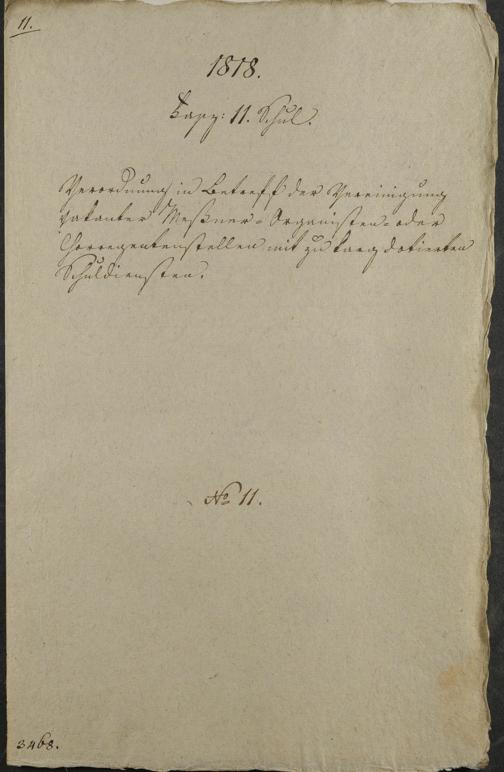 11.
1818.
Kapp: 11. Schul.
Verordnung in Betreff der Vereinigung
vakanter Meßner- Organisten- oder
Chorregentenstellen mit zu karg dotierten
Schuldiensten.
No 11.
3468.